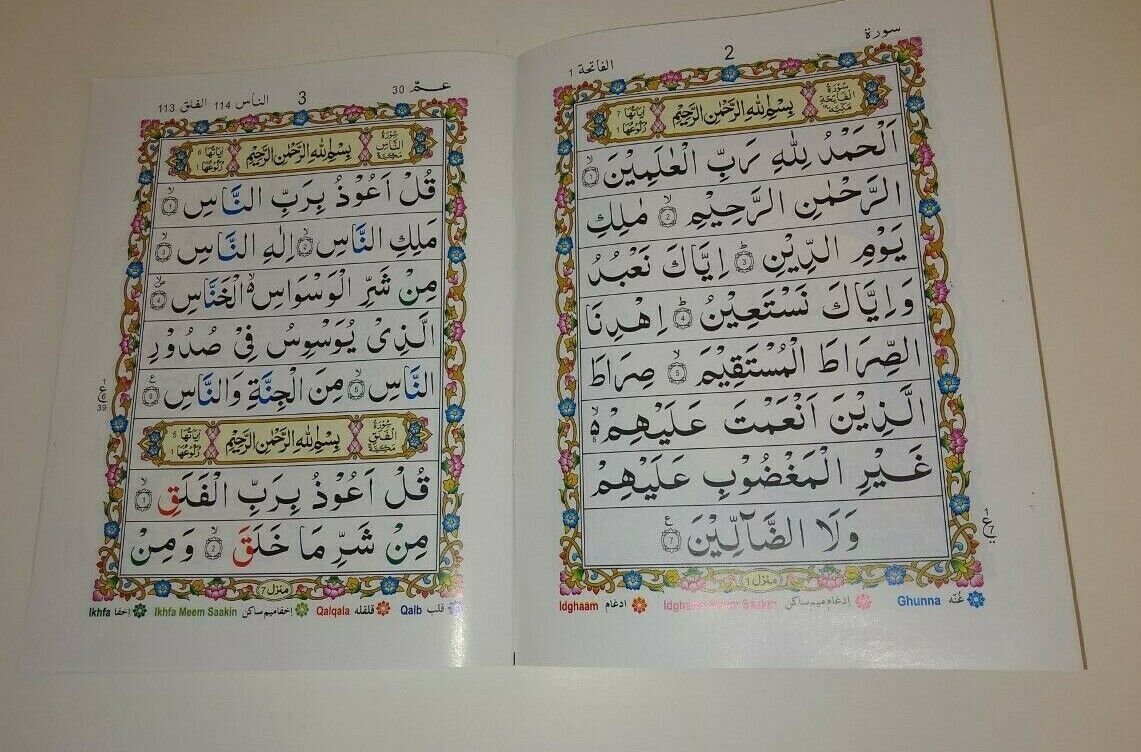 سورة
2
الفاتحة 1
سورة الفاتحة مكية
بِسْمِ اللهِ الرَّحْمٰنِ الرَّحِيْمِ
اٰيَاتُهَا 7 رُكُوْعُهَا 1
اَلْحَمْدُ لِلّٰهِ رَبِّ الْعٰلَمِيْنَ ۙ ١
الرَّحْمٰنِ الرَّحِيْمِ ۙ ٢ مٰلِكِ
يَوْمِ الدِّيْنِ ؕ ٣ اِيَّاكَ نَعْبُدُ
وَاِيَّاكَ نَسْتَعِيْنُ ؕ ٤ اِهْدِنَا
الصِّرَاطَ الْمُسْتَقِيْمَ ۙ ٥ صِرَاطَ
الَّذِيْنَ اَنْعَمْتَ عَلَيْهِمْ ۙ 6
غَيْرِ الْمَغْضُوْبِ عَلَيْهِمْ
وَلَا الضَّآلِّيْنَ ع ٧
1 ع 7
منزل 1
غُنّه Ghunna
إدغام ميم ساكن Idghaam Meem Saakin
ادغام Idghaam
عـمّ 30
3
الناس 114 الفلق 113
سورة الناس مكية
بِسْمِ اللهِ الرَّحْمٰنِ الرَّحِيْمِ
اٰيَاتُهَا 6 رُكُوْعُهَا 1
قُلْ اَعُوْذُ بِرَبِّ النَّاسِ ۙ ١
مَلِكِ النَّاسِ ۙ ٢ اِلٰهِ النَّاسِ ۙ ٣
مِنْ شَرِّ الْوَسْوَاسِ ۙ الْخَنَّاسِ ٤
الَّذِيْ يُوَسْوِسُ فِيْ صُدُوْرِ
النَّاسِ ۙ ٥ مِنَ الْجِنَّةِ وَالنَّاسِ ع ٦
1 ع 6 39
سورة الفلق مكية
بِسْمِ اللهِ الرَّحْمٰنِ الرَّحِيْمِ
اٰيَاتُهَا 5 رُكُوْعُهَا 1
قُلْ اَعُوْذُ بِرَبِّ الْفَلَقِ ۙ ١
مِنْ شَرِّ مَا خَلَقَ ۙ ٢ وَمِنْ
منزل 7
قلب Qalb
قلقله Qalqala
إخفا ميم ساكن Ikhfa Meem Saakin
إخفا Ikhfa